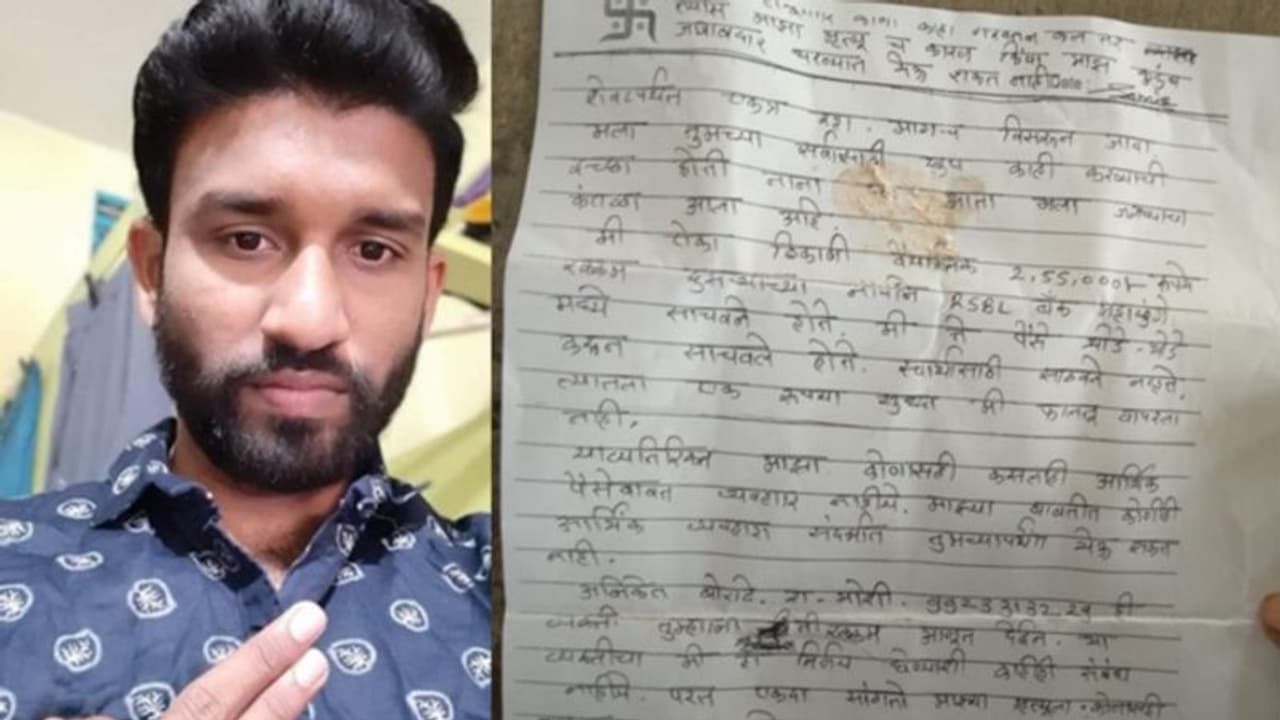 त्याला माझा मृत्यू च कारण किंवा माझ कुटुंब
जबाबदार धरण्यात येऊ शकत नाही Date:
शेवटपर्यंत एकत्र रहा. मागच विसरून जावा
मला तुमच्या सर्वांसाठी खुप काही करण्याची
इच्छा होती नाना पण आता मला जगण्याचा
कंटाळा आला आहे.
मी ठिकाणी वैयक्तिक 2,55,000/- रुपये
रक्कम दुसऱ्याच्या नावाने बँक महाळुंगे
मध्ये साचवले होते. मी ते पैसे थोडे-थोडे
करून साचवले होते. स्वार्थासाठी साठवले नव्हते.
त्यातला एक रुपया सुध्दा मी फालतू वापरला
नाही.
याव्यतिरिक्त माझा कोणासही कसलाही आर्थिक
पैसेबाबत व्यवहार नाहीये. माझ्या बाबतीत कोणीही
आर्थिक व्यवहारा संदर्भात तुमच्यापर्यंत येऊ शकत
नाही.
अनिकेत बोराटे. रा. मोशी. ही
व्यक्ती तुम्हाला ती रक्कम आणून देईल. या
व्यक्तीचा मी हा निर्णय घेण्याशी काहीही संबंध
नाहीये. परत एकदा सांगतो माझ्या मृत्यूला कोणताही